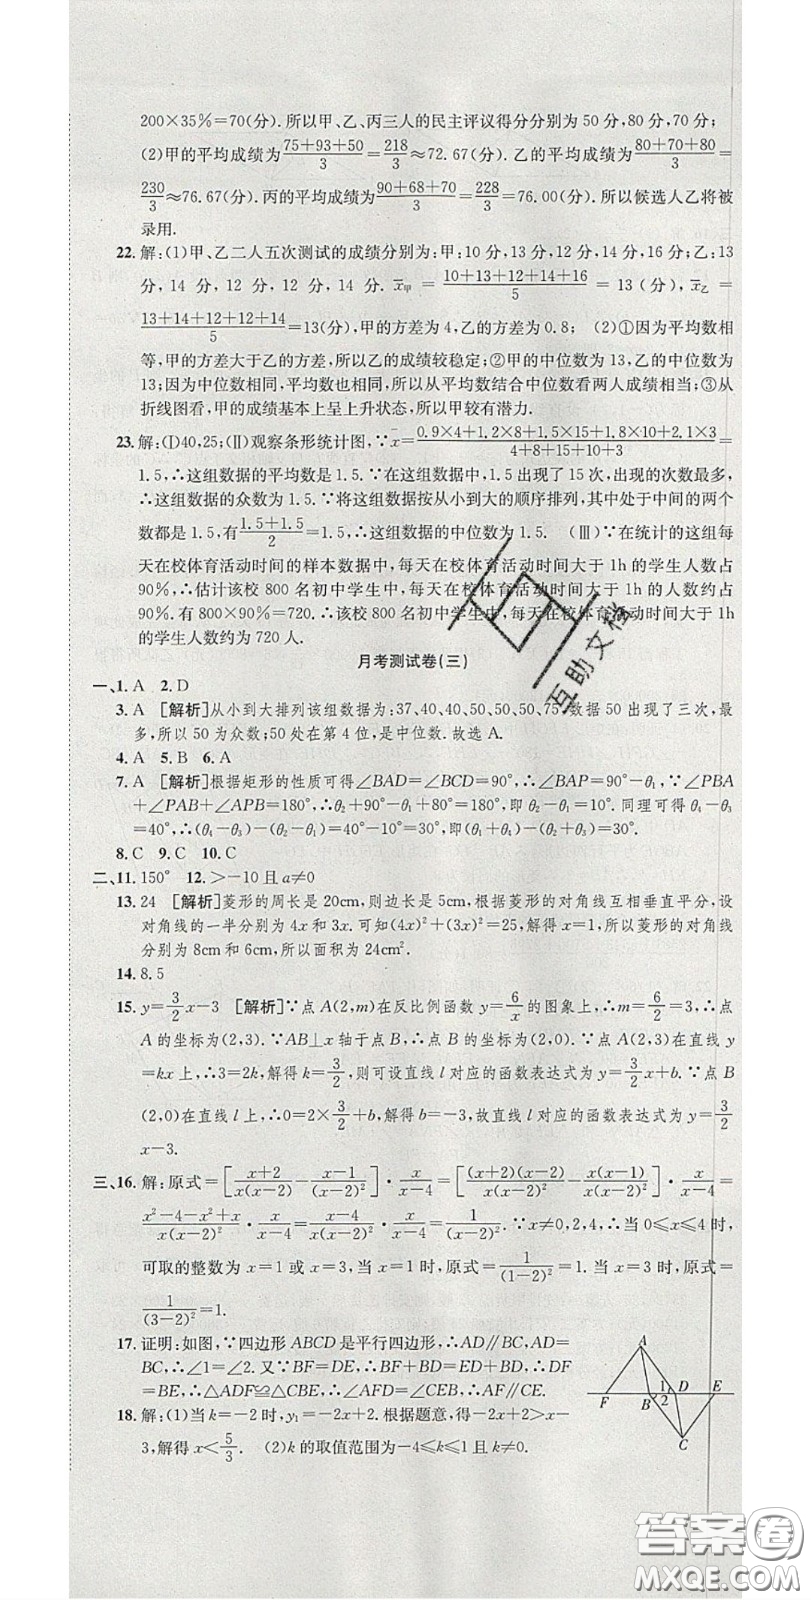 200×35%=70(分).所以甲、乙、丙三人的民主评议得分分别为50分,80分,70分;
(2)甲的平均成绩为(75+93+50)/3=218/3≈72.67(分).乙的平均成绩为(80+70+80)/3=
230/3≈76.67(分).丙的平均成绩为(90+68+70)/3=228/3=76.00(分).所以候选人乙将被
录用.
22.解:(1)甲、乙二人五次测试的成绩分别为:甲:10分,13分,12分,14分,16分;乙:13
分,14分,12分,12分,14分. x̄甲=(10+13+12+14+16)/5=13(分),x̄乙=
(13+14+12+12+14)/5=13(分),甲的方差为4,乙的方差为0.8; (2)①因为平均数相
等,甲的方差大于乙的方差,所以乙的成绩较稳定;②甲的中位数为13,乙的中位数为
13;因为中位数相同,平均数也相同,所以从平均数结合中位数看两人成绩相当;③从
折线图看,甲的成绩基本上呈上升状态,所以甲较有潜力.
23.解:(Ⅰ)40,25;(Ⅱ)观察条形统计图,∵x̄=(0.9×4+1.2×8+1.5×15+1.8×10+2.1×3)/(4+8+15+10+3)=
1.5,∴这组数据的平均数是1.5.∵在这组数据中,1.5出现了15次,出现的次数最多,
∴这组数据的众数为1.5.∵将这组数据按从小到大的顺序排列,其中处于中间的两个
数都是1.5,有(1.5+1.5)/2=1.5,∴这组数据的中位数为1.5. (Ⅲ)∵在统计的这组每
天在校体育活动时间的样本数据中,每天在校体育活动时间大于1h的学生人数占
90%,∴估计该校800名初中学生中,每天在校体育活动时间大于1h的人数约占
90%.有800×90%=720.∴该校800名初中学生中,每天在校体育活动时间大于1h
的学生人数约为720人.
月考测试卷(三)
一、1.A 2.D
3.A [解析]从小到大排列该组数据为:37,40,40,50,50,50,75,数据50出现了三次,最
多,所以50为众数;50处在第4位,是中位数.故选A.
4.A 5.B 6.A
7.A [解析]根据矩形的性质可得∠BAD=∠BCD=90°,∴∠BAP=90°-θ₁,∵∠PBA
+∠PAB+∠APB=180°,∴θ₂+90°-θ₁+80°=180°,即θ₂-θ₁=10°.同理可得θ₄-θ₃
=40°,∴(θ₄-θ₃)-(θ₂-θ₁)=40°-10°=30°,即(θ₁+θ₄)-(θ₂+θ₃)=30°.
8.C 9.C 10.C
二、11.150° 12.>-10且a≠0
13.24 [解析]菱形的周长是20cm,则边长是5cm,根据菱形的对角线互相垂直平分,设
对角线的一半分别为4x和3x.可知(4x)²+(3x)²=25,解得x=1,所以菱形的对角线
分别为8cm和6cm,所以面积为24cm².
14.8.5
15.y=3/2x-3 [解析]∵点A(2,m)在反比例函数y=6/x的图象上,∴m=6/2=3,∴点
A的坐标为(2,3).∵AB⊥x轴于点B,∴点B的坐标为(2,0).∵点A(2,3)在直线y
=kx上,∴3=2k,解得k=3/2,则可设直线l对应的函数表达式为y=3/2x+b.∵点B
(2,0)在直线l上,∴0=2×3/2+b,解得b=-3,故直线l对应的函数表达式为y=3/2
x-3.
三、16.解:原式=[(x+2)/(x(x-2))-(x-1)/(x-2)²]·x/(x-4)=[(x+2)(x-2)/(x(x-2)²)-x(x-1)/(x(x-2)²)]·x/(x-4)=
(x²-4-x²+x)/(x(x-2)²)·x/(x-4)=(x-4)/(x(x-2)²)·x/(x-4)=1/(x-2)².∵x≠0,2,4,∴当0≤x≤4时,
可取的整数为x=1或x=3,当x=1时,原式=1/(1-2)²=1.当x=3时,原式
=1/(3-2)²=1.
17.证明:如图,∵四边形ABCD是平行四边形,∴AD∥BC,AD=
BC,∴∠1=∠2.又∵BF=DE,∴BF+BD=DE+BD,∴DF
=BE,∴△ADF≌△CBE,∴∠AFD=∠CEB,∴AF∥CE.
A
F B 1 2 D E
C
18.解:(1)当k=-2时,y₁=-2x+2.根据题意,得-2x+2>x-
3,解得x<5/3. (2)k的取值范围为-4≤k≤1且k≠0.
互助文档
答案圈
MXQE.COM